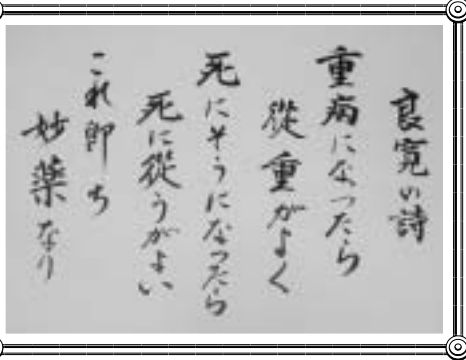 良寛の詩
重病になったら
従重がよく
死にそうになったら
死に従うがよい
これ即ち
妙薬なり